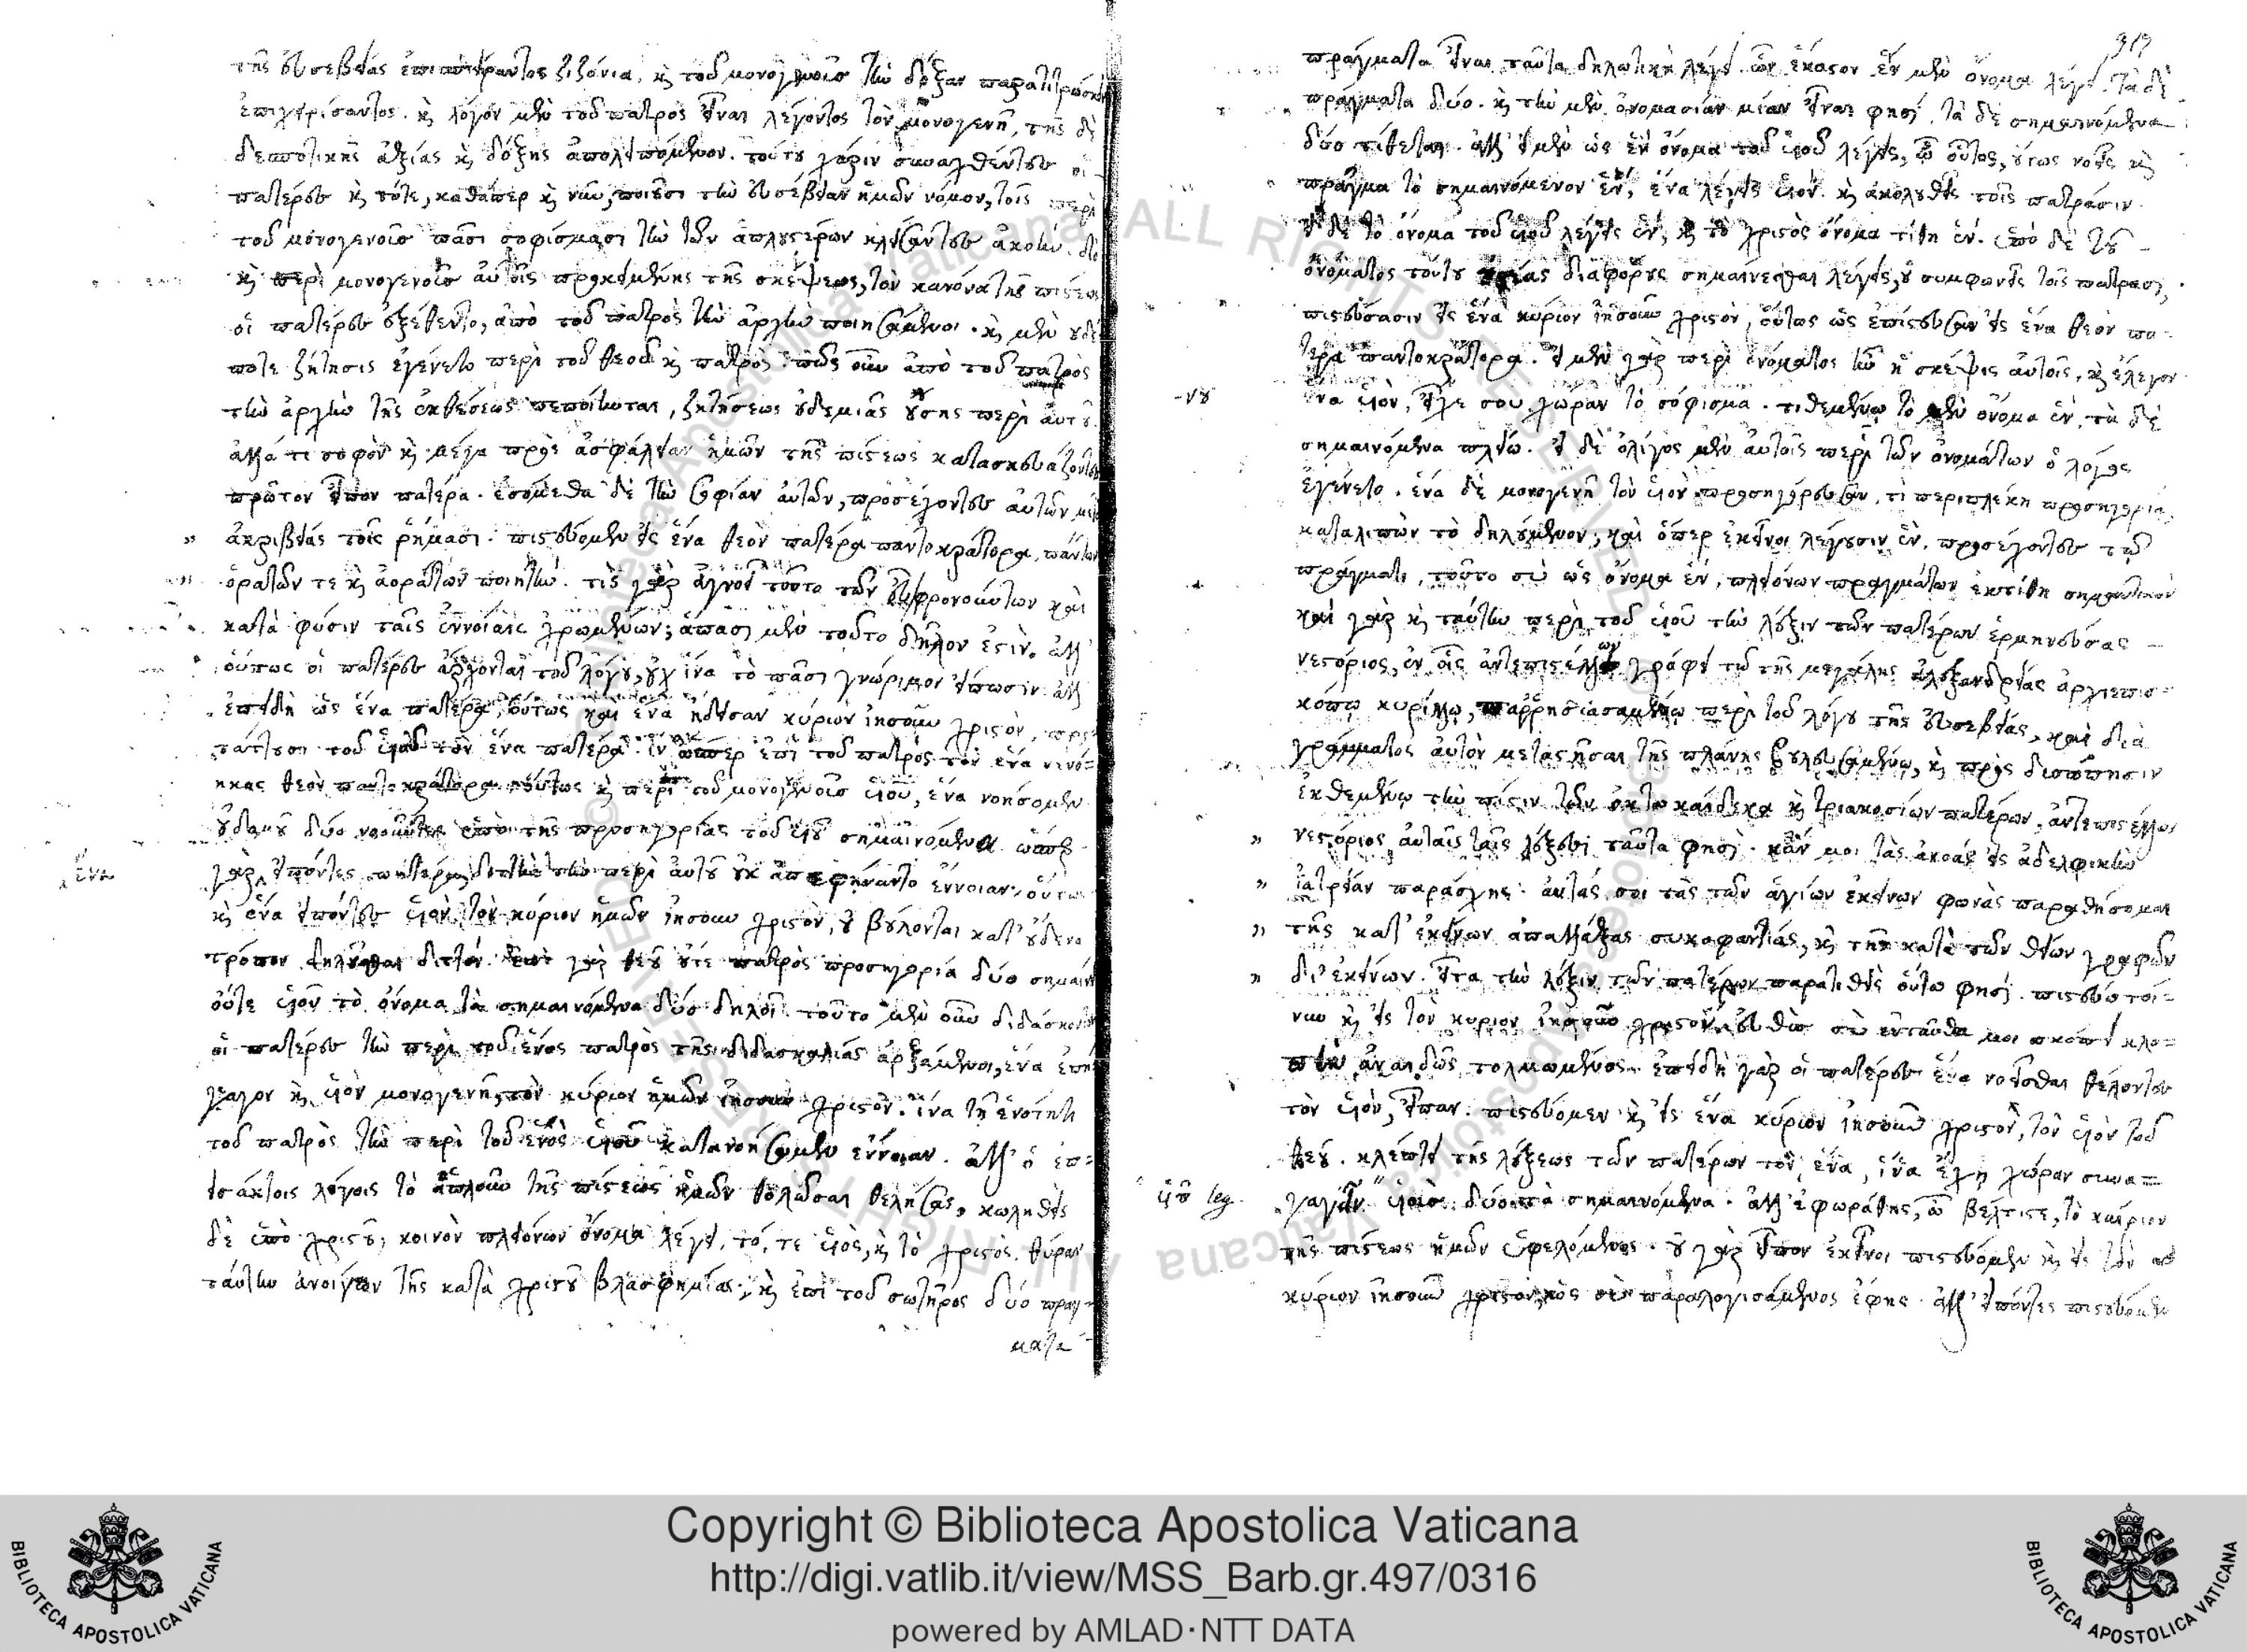 τῆς εὐσεβείας ἐπισπείραντος ζιζάνια, καὶ τοῦ μονογενοῦς τὴν δόξαν παρατιτρώσκειν
ἐπιχειρήσαντος. καὶ λόγον μὲν τοῦ πατρὸς εἶναι λέγοντος τὸν μονογενῆ, τῆς δὲ
δεσποτικῆς ἀξίας καὶ δόξης ἀπολειπόμενον. τούτου χάριν συναχθέντες οἱ
πατέρες καὶ τότε, καθάπερ καὶ νῦν, ποιοῦσι τὴν εὐσέβειαν ἡμῶν νόμον, τοῖς περὶ
τοῦ μονογενοῦς πᾶσι σοφίσμασι τὴν τῶν ἁπλουστέρων κλείσαντες ἀκοήν. διὸ
καὶ περὶ μονογενοῦς αὐτοῖς προκειμένης τῆς σκέψεως, τὸν κανόνα τῆς πίστεως
οἱ πατέρες ἐξέθεντο, ἀπὸ τοῦ πατρὸς τὴν ἀρχὴν ποιησάμενοι. καὶ μὲν οὐδέ
ποτε ζήτησις ἐγένετο περὶ τοῦ θεοῦ καὶ πατρός. πῶς οὖν ἀπὸ τοῦ πατρὸς
τὴν ἀρχὴν τῆς ἐκθέσεως πεποίηνται, ζητήσεως οὐδεμιᾶς οὔσης περὶ αὐτοῦ.
ἀλλά τι σοφὸν καὶ μέγα πρὸς ἀσφάλειαν ἡμῶν τῆς πίστεως κατασκευάζοντες
πρῶτον εἶπον πατέρα. εἰσόμεθα δὲ τὴν σοφίαν αὐτῶν, προσέχοντες αὐτῶν μετὰ
" ἀκριβείας τοῖς ῥήμασι. πιστεύομεν εἰς ἕνα θεὸν πατέρα παντοκράτορα, πάντων
" ὁρατῶν τε καὶ ἀοράτων ποιητήν. τίς γὰρ ἀγνοεῖ τοῦτο τῶν εὖ φρονούντων καὶ
κατὰ φύσιν ταῖς ἐννοίαις χρωμένων; ἅπασι μὲν τοῦτο δῆλόν ἐστιν. ἀλλ'
οὔπως οἱ πατέρες ἄρχονται τοῦ λόγου, οὐχ ἵνα τὸ πᾶσι γνώριμον εἴπωσιν. ἀλλ'
ἐπειδὴ ὡς ἕνα πατέρα, οὕτως καὶ ἕνα ᾔδεισαν κύριον ἰησοῦν χριστὸν, προ
τάττουσι τοῦ υἱοῦ τὸν ἕνα πατέρα. ἵν' ὥσπερ ἐπὶ τοῦ πατρὸς τὸν ἕνα νενό=
ηκας θεὸν παντοκράτορα, οὕτως καὶ περὶ τοῦ μονογενοῦς υἱοῦ, ἕνα νοήσωμεν
οὐδαμοῦ δύο νοοῦντες ἀπὸ τῆς προσηγορίας τοῦ υἱοῦ σημαινόμενα. ὥσπερ
ἕνα
γὰρ εἰπόντες πατέρα, διττὴν τὴν περὶ αὐτοῦ οὐκ ἀπεφήναντο ἔννοιαν, οὕτω
καὶ ἕνα εἰπόντες υἱὸν τὸν κύριον ἡμῶν ἰησοῦν χριστὸν, οὐ βούλονται κατ' οὐδένα
τρόπον δηλοῦσθαι διττόν. οὔτε γὰρ θεοῦ οὔτε πατρὸς προσηγορία δύο σημαίνει
οὔτε υἱοῦ τὸ ὄνομα τὰ σημαινόμενα δύο δηλοῖ. τοῦτο μὲν οὖν διδάσκοντες
οἱ πατέρες τὴν περὶ τοῦ ἑνὸς πατρὸς τῆς διδασκαλίας ἀρξάμενοι, ἕνα ἐπή
γαγον καὶ υἱὸν μονογενῆ, τὸν κύριον ἡμῶν ἰησοῦν χριστόν. ἵνα τῇ ἑνότητι
τοῦ πατρὸς τὴν περὶ τοῦ ἑνὸς υἱοῦ κατανοήσωμεν ἔννοιαν. ἀλλ' ὁ ἐπ=
εισάκτοις λόγοις τὸ ἁπλοῦν τῆς πίστεως ἡμῶν θολῶσαι θελήσας, κωλυθεὶς
δὲ ὑπὸ χριστοῦ, κοινὸν πλειόνων ὄνομα λέγει, τό, τε υἱὸς, καὶ τὸ χριστὸς, θύραν
ταύτην ἀνοίγων τῆς κατὰ χριστοῦ βλασφημίας, καὶ ἐπὶ τοῦ σωτῆρος δύο πραγ=
ματα
πράγματα εἶναι ταῦτα δηλωτικὰ λέγει. ὧν ἕκαστον ἓν μὲν ὄνομα λέγει. τὰ δὲ
πράγματα δύο. καὶ τὴν μὲν ὀνομασίαν μίαν εἶναι φησὶ, τὰ δὲ σημαινόμενα
δύο τίθεται. ἀλλ' εἰ μὲν ὡς ἓν ὄνομα τοῦ υἱοῦ λέγεις, ὦ οὗτος, οὕτως νοεῖς καὶ
πρᾶγμα τὸ σημαινόμενον ἓν, ἕνα λέγεις υἱὸν. καὶ ἀκολουθεῖς τοῖς πατράσιν
εἰ δὲ τὸ ὄνομα τοῦ υἱοῦ λέγεις ἓν, καὶ τὸ χριστὸς ὄνομα τίθῃ ἕν. ὑπὸ δὲ τοῦ
ὀνόματος τούτου οὐσίας διαφόρους σημαίνεσθαι λέγεις, οὐ συμφωνεῖς τοῖς πατράσι,
πιστεύσασιν εἰς ἕνα κύριον ἰησοῦν χριστὸν, οὕτως ὡς ἐπίστευσαν εἰς ἕνα θεὸν πα
τέρα παντοκράτορα. εἰ μὲν γὰρ περὶ ὀνόματος ἦν ἡ σκέψις αὐτοῖς, καὶ ἔλεγον
ἕνα υἱὸν, εἶχέ σου χώραν τὸ σόφισμα. τιθεμένῳ τὸ μὲν ὄνομα ἓν, τὰ δὲ
σημαινόμενα πλείω. εἰ δὲ ὀλίγος μὲν αὐτοῖς περὶ τῶν ὀνομάτων ὁ λόγος
ἐγένετο. ἕνα δὲ μονογενῆ τὸν υἱὸν προσηγόρευσαν, τί περιπλέκῃ προσηγορία,
καταλιπὼν τὸ δηλούμενον, καὶ ὅπερ ἐκεῖνοι λέγουσιν ἓν, προσέχοντες τῷ
πράγματι, τοῦτο σὺ ὡς ὄνομα ἓν, πλειόνων πραγμάτων ἐκτίθῃ σημαντικόν
καὶ γὰρ καὶ ταύτην περὶ τοῦ υἱοῦ τὴν λέξιν τῶν πατέρων ἑρμηνεύσας
νεστόριος, ἐν οἷς ἀντεπιστέλλων γράφει τῷ τῆς μεγάλης ἀλεξανδρείας ἀρχιεπισ=
κόπῳ κυρίλλῳ, παρρησιασαμένῳ περὶ τοῦ λόγου τῆς εὐσεβείας, καὶ διὰ
γράμματος αὐτὸν μεταστῆσαι τῆς πλάνης βουλευσαμένῳ, καὶ πρὸς δυσώπησιν
ἐκθεμένῳ τὴν πίστιν τῶν ὀκτωκαίδεκα καὶ τριακοσίων πατέρων, ἀντεπιστέλλων
" νεστόριος αὐταῖς ταῖς λέξεσι ταῦτα φησὶ. κἄν μοι τὰς ἀκοὰς εἰς ἀδελφικὴν
" ἰατρείαν παράσχῃς. αὐτάς σοι τὰς τῶν ἁγίων ἐκείνων φωνὰς παραθήσομαι
" τῆς κατ' ἐκείνων ἀπαλλάξας συκοφαντίας, καὶ τῆς κατὰ τῶν θείων γραφῶν
" δι' ἐκείνων. εἶτα τὴν λέξιν τῶν πατέρων παρατιθεὶς οὕτω φησὶ. πιστεύω τοί=
νυν καὶ εἰς τὸν κύριον ἰησοῦν χριστόν. εὐθὺς σὺ ἐνταῦθα μοι σκόπει κλο=
πὴν ἀναιδῶς τολμωμένην. ἐπειδὴ γὰρ οἱ πατέρες ἕνα νοεῖσθαι θέλοντες
τὸν υἱὸν, εἶπαν. πιστεύομεν καὶ εἰς ἕνα κύριον ἰησοῦν χριστὸν, τὸν υἱὸν τοῦ
θεοῦ. κλέπτει τῆς λέξεως τῶν πατέρων τὸν, ἕνα, ἵνα ἔχῃ χώραν συνα=
γαγεῖν υἱοὺς δύο τὰ σημαινόμενα. ἀλλ' ἐφωράθης, ὦ βέλτιστε, τὸ καίριον
τῆς πίστεως ἡμῶν ὑφελόμενος. οὐ γὰρ εἶπον ἐκεῖνοι πιστεύομεν καὶ εἰς τὸν
κύριον ἰησοῦν χριστὸν, ὡς σὺ παραλογισάμενος ἔφης. ἀλλ' εἰπόντες πιστεύομεν
Copyright © Biblioteca Apostolica Vaticana
http://digi.vatlib.it/view/MSS_Barb.gr.497/0316
powered by AMLAD·NTT DATA
BIBLIOTECA APOSTOLICA VATICANA
BIBLIOTECA APOSTOLICA VATICANA